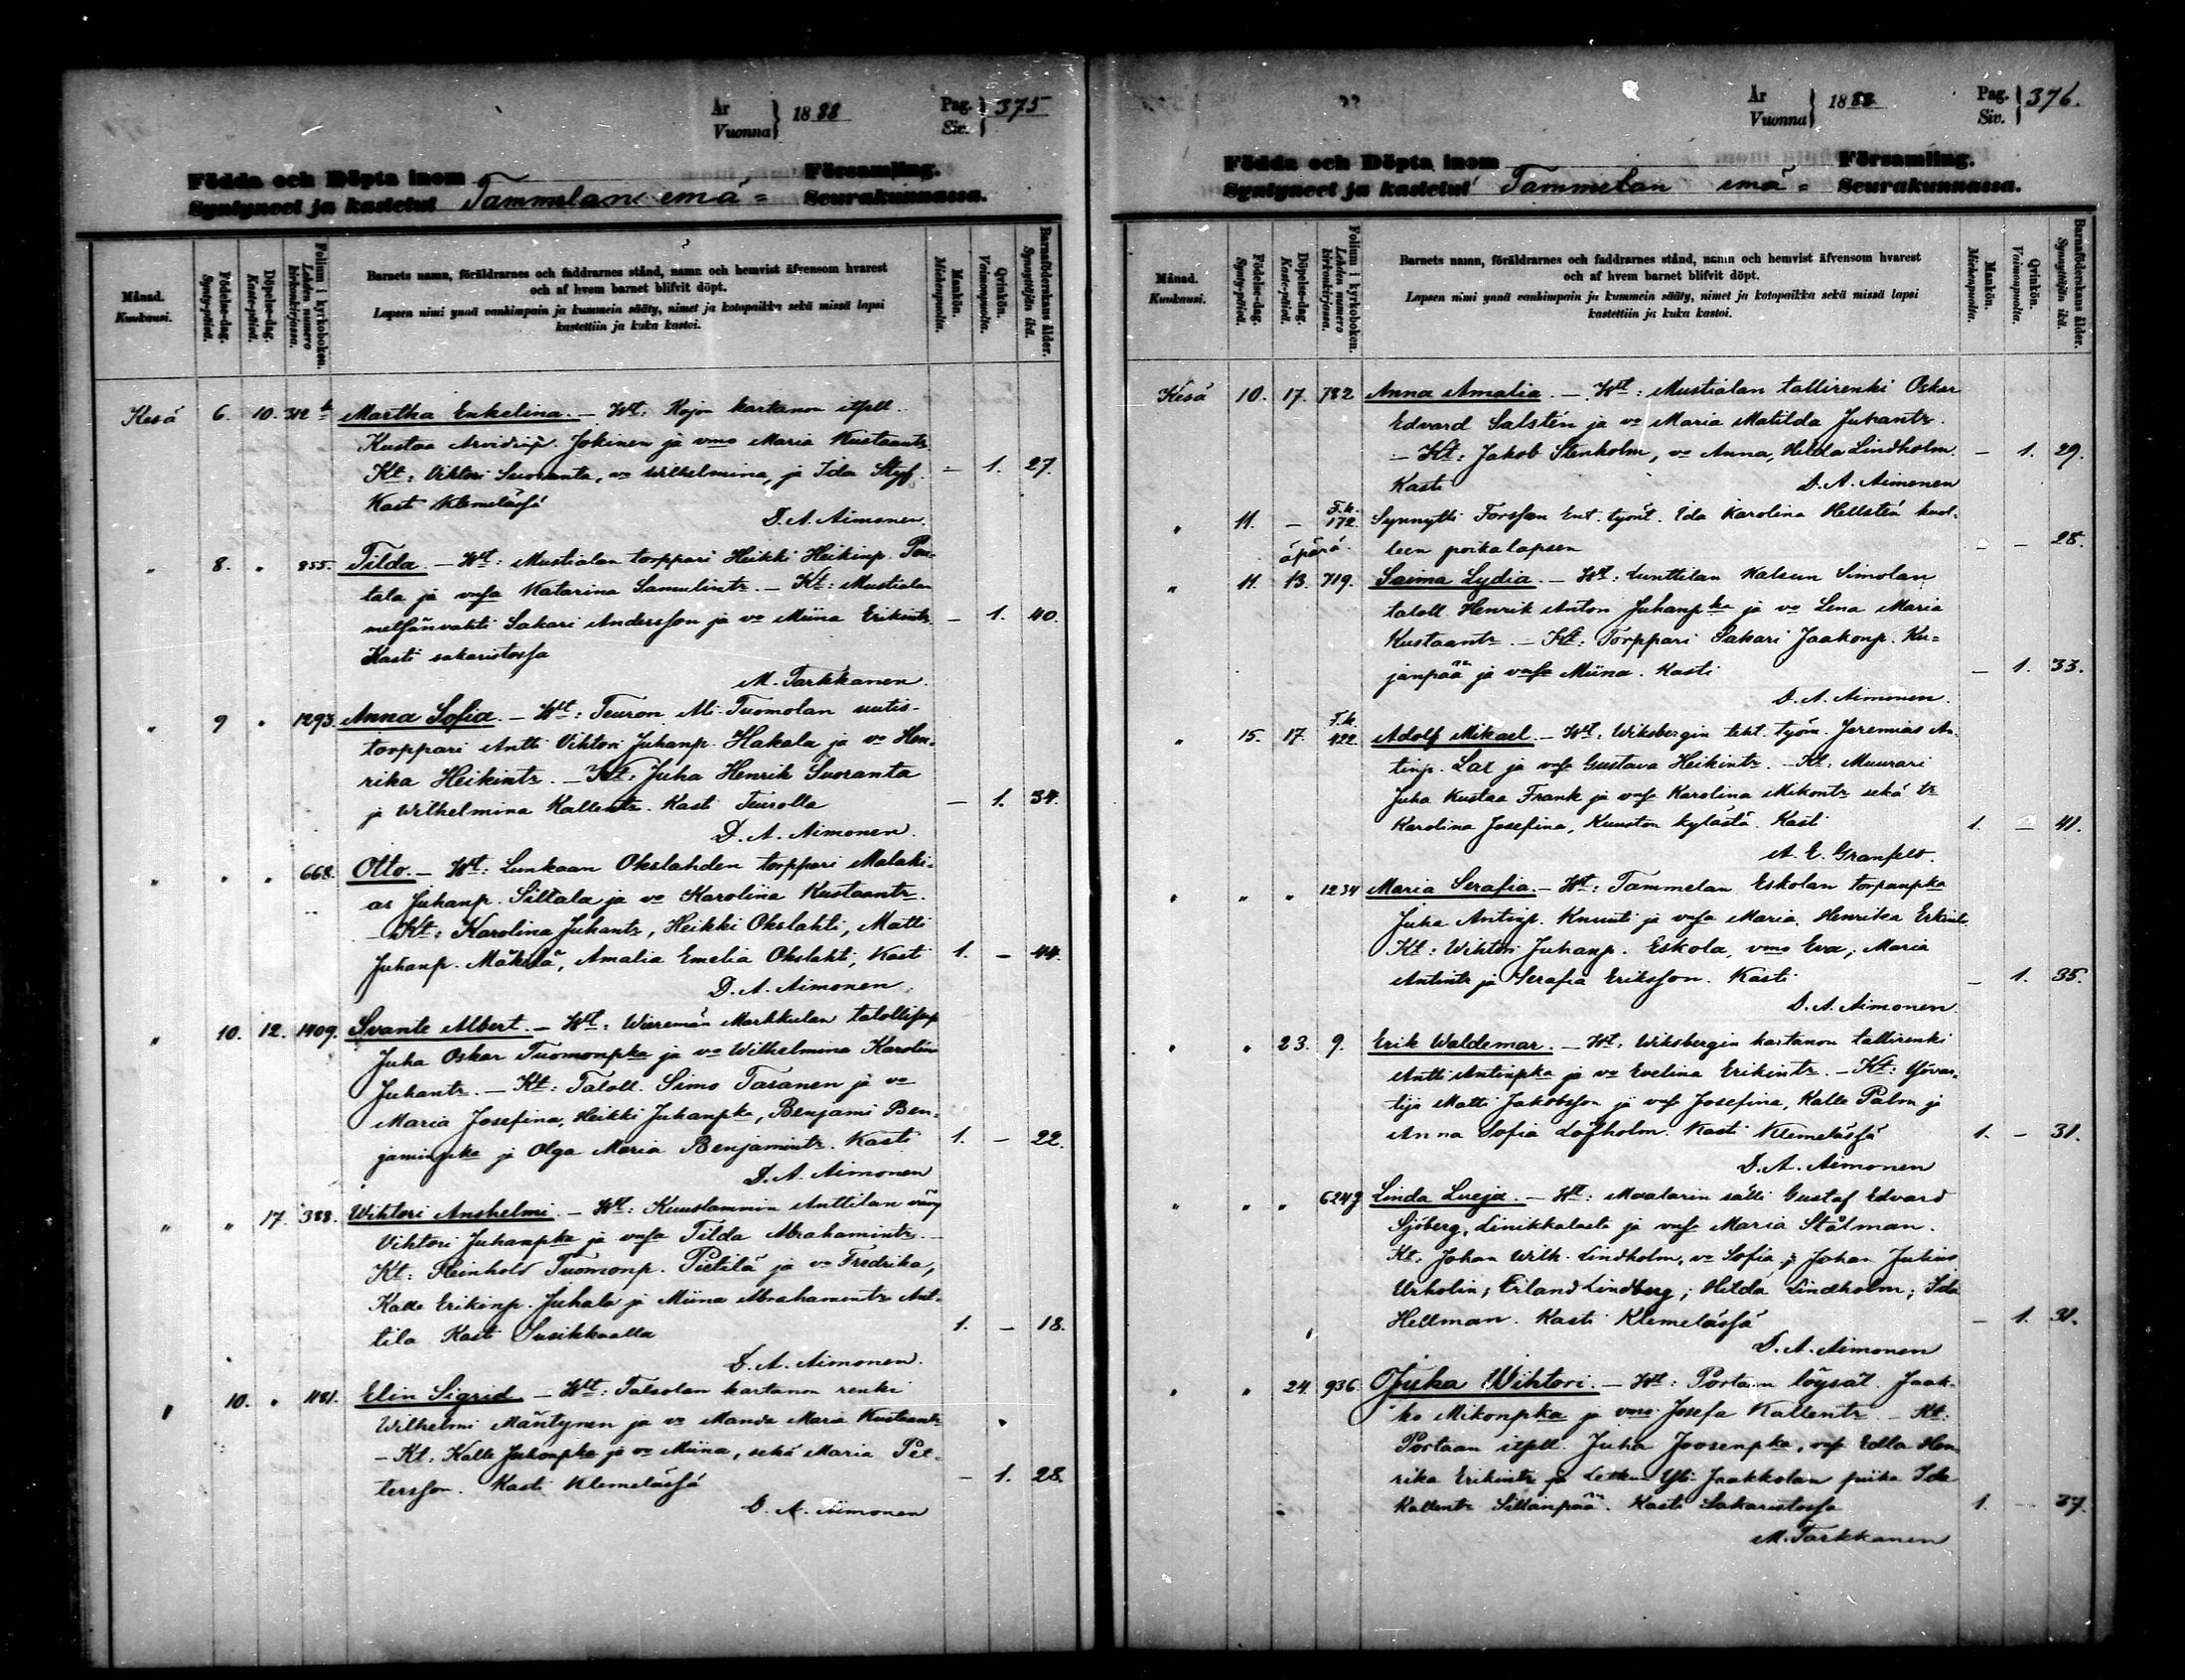 År
Vuonna } 1888
Pag.
Siv. } 375
Födda och Döpta inom Församling.
Syntyneet ja kastetut Tammelan emä= Seurakunnassa.
Månad. Kuukausi.
Födelse-dag. Synty-päivä.
Döpelse-dag. Kaste-päivä.
Folium i kyrkoboken. Lehden numero kirkonkirjassa.
Barnets namn, föräldrarnes och faddrarnes stånd, namn och hemvist äfvensom hvarest
och af hvem barnet blifvit döpt.
Lapsen nimi ynnä vanhimpain ja kummein sääty, nimet ja kotopaikka sekä missä lapsi
kastettiin ja kuka kastoi.
Mankön. Miehenpuolia.
Qvinkön. Vaimonpuolia.
Barnaföderskans ålder. Synnyttäjän ikä.
Kesä 6. 10. 312 b Martha Enkelina. — Wt: Kojon kartanon itsell.
Kustaa Arvidinp. Jokinen ja vmo Maria Kustaantr.
Kt: Viktori Suoranta, vo Wilhelmina, ja Ida Styf. — 1. 27.
Kast Klemelässä
D. A. Aimonen.
" 8. " 855. Tilda. — Wt: Mustialan torppari Heikki Heikinp. Pou-
tala ja vmsa Katarina Samulintr. — Kt: Mustialan
metsänvahti Sakari Andersson ja vo Miina Erikintr. — 1. 40.
Kasti sakaristossa
M. Tarkkanen.
" 9 " 1293. Anna Sofia. — Wt: Teuron Ali-Tuomolan uutis-
torppari Antti Vihtori Juhanp. Hakala ja vo Hen-
rika Heikintr. — Kt: Juha Henrik Suoranta
ja Wilhelmina Kallentr. Kasti Teurolla — 1. 34.
D. A. Aimonen.
" " " 668. Otto. — Wt: Lunkaan Okslahden torppari Malaki-
as Juhanp. Siltala ja vo Karoliina Kustaantr.
— Kt: Karolina Juhantr, Heikki Okslahti, Matti
Juhanp. Mäkelä, Amalia Emelia Okslahti, Kasti 1. — 44.
D. A. Aimonen.
" 10. 12. 1409. Svante Albert. — Wt: Wieremän Markkulan talollisenp
Juha Oskar Tuomonpka ja vo Wilhelmina Karolin
Juhantr. — Kt: Taloll. Simo Taranen ja vo
Maria Josefina, Heikki Juhanpka, Benjami Ben-
jaminpka ja Olga Maria Benjamintr. Kasti 1. — 22.
D. A. Aimonen
" " 17. 388. Wihtori Anshelmi. — Wt: Kuuslammin Anttilan väv
Vihtori Juhanpka ja vmsa Tilda Abrahamintr. —
Kt: Reinhold Tuomonp. Pietilä ja vo Fredrika,
Kalle Erikinp. Juhala ja Miina Abrahamintr Ant-
tila Kasti Susikkaalla 1. — 18.
D. A. Aimonen.
" 10. " 1181. Elin Sigrid — Wt: Talsolan kartanon renki
Wilhelmi Mäntynen ja vo Manda Maria Kustaantr
— Kt: Kalle Juhonpka ja vo Miina, sekä Maria Pet-
tersson. Kasti Klemelässä — 1. 28.
D. A. Aimonen
År
Vuonna } 1888
Pag.
Siv. } 376.
Födda och Döpta inom Församling.
Syntyneet ja kastetut Tammelan emä= Seurakunnassa.
Månad. Kuukausi.
Födelse-dag. Synty-päivä.
Döpelse-dag. Kaste-päivä.
Folium i kyrkoboken. Lehden numero kirkonkirjassa.
Barnets namn, föräldrarnes och faddrarnes stånd, namn och hemvist äfvensom hvarest
och af hvem barnet blifvit döpt.
Lapsen nimi ynnä vanhimpain ja kummein sääty, nimet ja kotopaikka sekä missä lapsi
kastettiin ja kuka kastoi.
Mankön. Miehenpuolia.
Qvinkön. Vaimonpuolia.
Barnaföderskans ålder. Synnyttäjän ikä.
Kesä 10. 17. 782 Anna Amalia. — Wt: Mustialan tallirenki Oskar
Edvard Salstén ja vo Maria Matilda Juhantr.
— Kt: Jakob Stenholm, vo Anna, Hilda Lindholm. — 1. 29.
Kasti D. A. Aimonen
" 11. — T.k. 172. Synnytti Forssan Ent. työnt. Ida Karolina Hellstén kuol-
äpärä. leen poikalapsen — — 28.
" 11. 13. 719. Saima Lydia. — Wt: Lunttilan Kalsun Simolan
taloll. Henrik Anton Juhanpka ja vo Lena Maria
Kustaantr. — Kt: Torppari Sakari Jaakonp. Ku-
janpää ja vmsa Miina. Kasti — 1. 33.
D. A. Aimonen.
" 15. 17. T.k. 422. Adolf Mikael. — Wt: Wiksbergin teht. työm. Jeremias An-
tinp. Lax ja vmsa Gustava Heikintr. — Kt: Muurari
Juha Kustaa Frank ja vmsa Karolina Mikontr sekä tr
Karolina Josefina, Kuuston kylästä. Kasti 1. — 41.
A. E. Granfelt.
" " " 1234 Maria Serafia. — Wt: Tammelan Eskolan torpanpka
Juha Antinp. Knuuti ja vmsa Maria Henrika Erkintr.
Kt: Wihtori Juhanp. Eskola, vmo Eva; Maria
Antintr ja Serafia Eriksson. Kasti — 1. 35.
D. A. Aimonen.
" " 23. 9. Erik Waldemar. — Wt: Wiksbergin kartanon tallirenki
Antti Antinpka ja vo Evelina Erikintr. — Kt: Yövar-
tija Matti Jakobsson ja vmsa Josefina, Kalle Palm ja
Anna Sofia Löfholm. Kasti Klemelässä 1. — 31.
D. A. Aimonen
" " " 624 Linda Lucja. — Wt: Maalarin sälli Gustaf Edvard
Sjöberg, Linikkalasta ja vmsa Maria Stålman.
Kt: Johan Wilh. Lindholm, vo Sofia; Johan Julius
Urholin; Erland Lindberg; Hilda Lindholm; Ida
Hellman. Kasti Klemelässä — 1. 31.
D. A. Aimonen
" " 24. 936. Juka Wihtori. — Wt: Portaan löysät. Jaak-
ko Mikonpka ja vmo Josefa Kallentr. — Kt:
Portaan itsell. Juha Joosenpka, vmsa Edla Hen-
rika Erikintr ja Letkun Yli-Jaakkolan piika Ida
Kallentr Sillanpää. Kasti Sakaristossa 1. — 37.
M. Tarkkanen